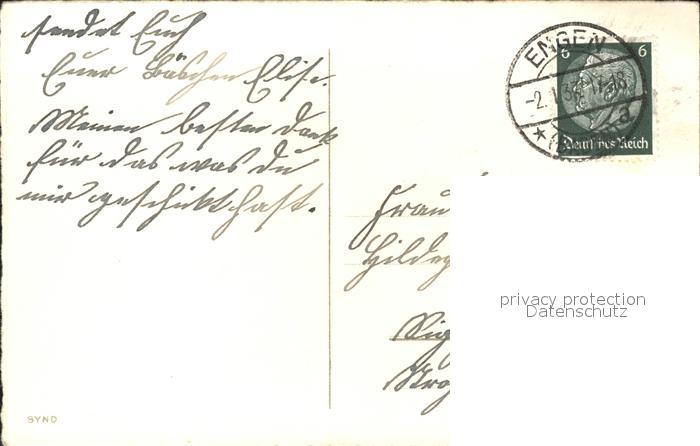 sendet Euch
Euer Bäschen Elise.
Meinen besten Dank
für das was du
mir geschikt hast.
ENGEN
-2.1.36
a
6 6
Deutsches Reich
Frau
Hildeg
privacy protection
Datenschutz
Sig
SYND